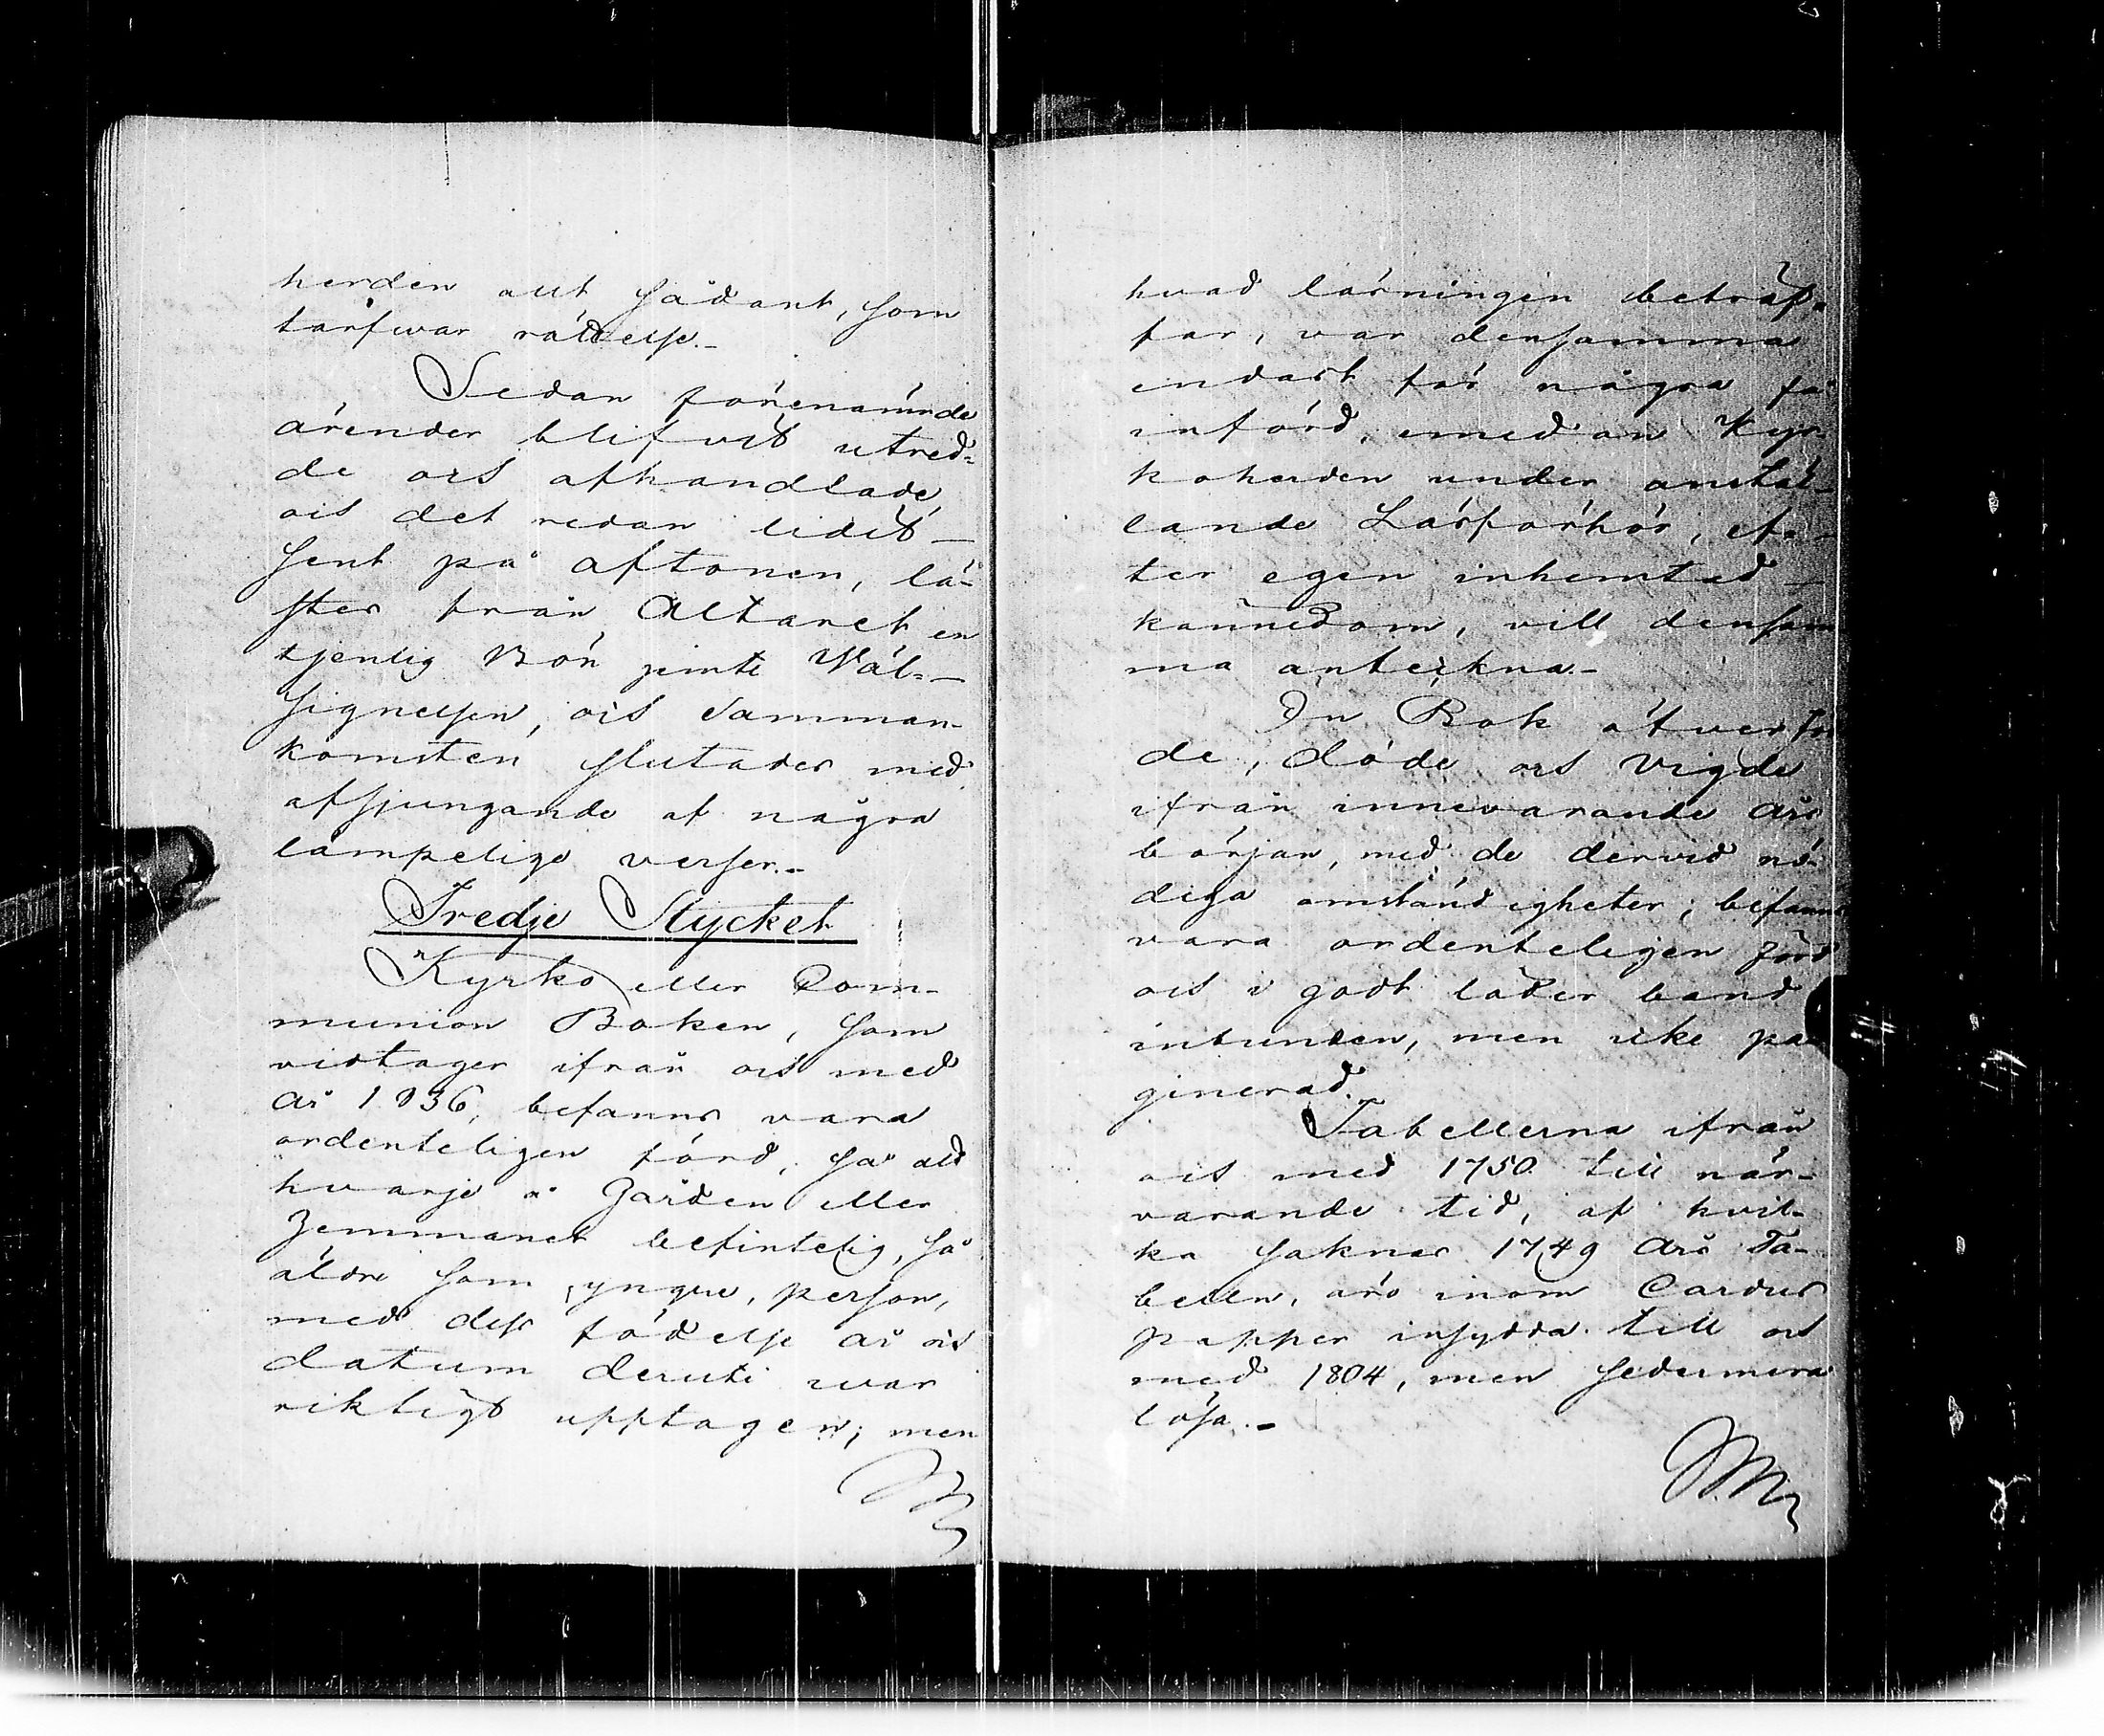 herden allt sådant, som
tarfwar rättelse.-
Sedan förenämnde
ärender blifvit utred=
de och afhandlade,
och det redan lidit -
sent på aftonen, lä-
stes från Altaret en
tjenlig Bön jemte Väl=-
signelsen, och Samman-
komsten slutades med
afsjungande af några
lämpelige verser.-
Tredje Stycket
Kyrko eller Com-
munion Boken, som
vidtager ifrån och med
år 1836, befanns vara
ordenteligen förd, så att
hvarje å Gården eller
Hemmanet befintelig, så
äldre som yngre, person,
med dess födelse år och
datum deruti war
riktigt upptagen; men
hvad läsningen beträf=
far, var densamma
endast för några få
införd, emedan Kyr-
koherden under anstäl-
lande Läsförhör, ef-
ter egen inhemtad -
kännedom, vill densam
ma anteckna.-
In Bok öfver föd
de, döde och vigde
ifrån innevarande års
början, med de dervid nö-
diga omständigheter; befanns
vara ordenteligen förd
och i godt läder band
inbunden, men icke pa-
ginerad.-
Tabellerna ifrån
och med 1750 till när-
varande tid, af hvil-
ka saknas 1749 års Ta-
bellen, äro inom Cardus
papper insydda till och
med 1804, men sedermera
lösa.-